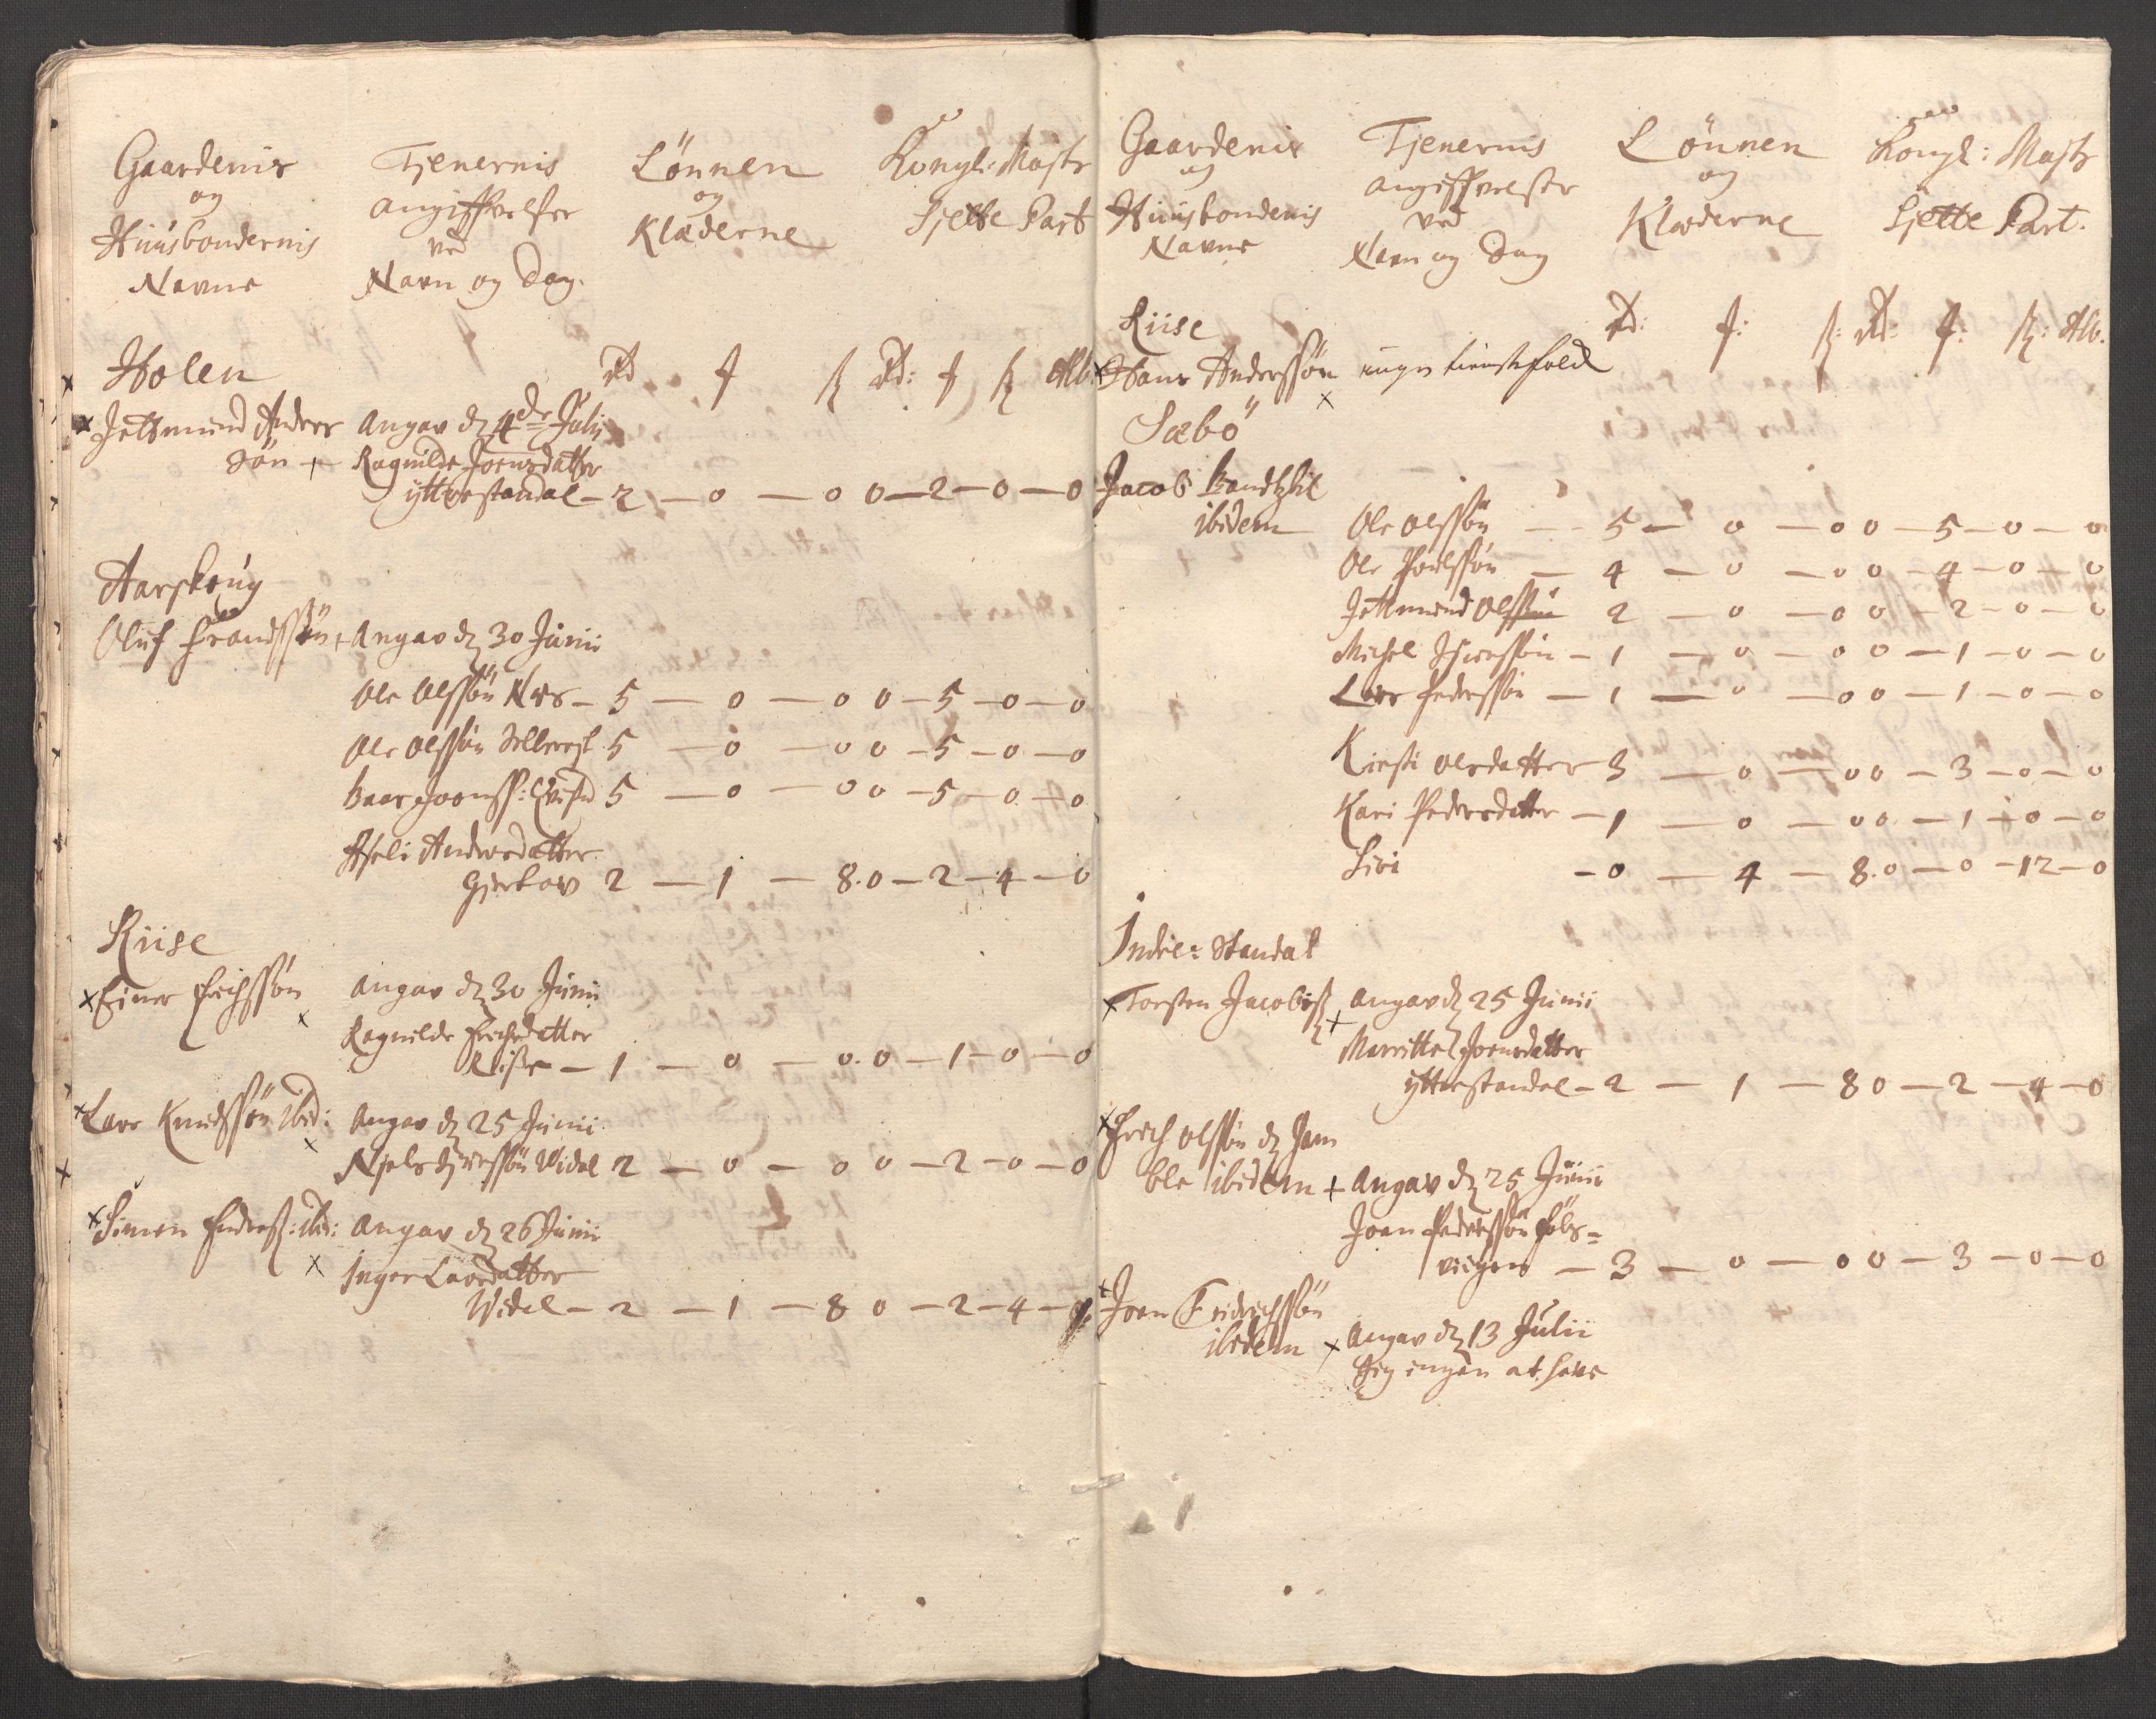 Gaardenis
og
Huusbondernis
Navne
Tjenernis
angiffvelser
ved
Navn og Dag.
Lönnen
og
Klæderne
Kongl: Mayts
Sjette Part
Holen
Rd f ß Rd: f ß Alb.
× Jettmund Anders
Sön +
Angav d 4de Julij
Ragnilde Joensdatter
ytterstandal – 2 – 0 – 0 0 – 2 – 0 – 0
Aarskoug
Oluf Frandssön +
Angav d 30 Junii
Ole Olssön Nes – 5 – 0 – 0 0 – 5 – 0 – 0
Ole Olssön 5 – 0 – 0 0 – 5 – 0 – 0
Baar Joenss: 5 – 0 – 0 0 – 5 – 0 – 0
Aseli Andersdatter
Gjerkov 2 – 1 – 8. 0 – 2 – 4 – 0
Riise
× Einer Erichssön ×
Angav d 30 Junii
Ragnilde Erichsdatter
Riise – 1 – 0 – 0. 0 – 1 – 0 – 0
× Lars Knudssön ibid: ×
Angav d 25 Junii
Njels Widal 2 – 0 – 0 0 – 2 – 0 – 0
× Simen Pederß: ibid: ×
Angav d 26 Junii
Inger Larsdatter
Widal – 2 – 1 – 8 0 – 2 – 4 – 0
Gaardenis
og
Huusbondenis
Navne
Tjenernis
angiffvelser
ved
Navn og Dag
Lönnen
og
Klæderne
Kongl: Mayts
Sjette Part.
Riise
Rd: f: ß: Rd: f: ß: Alb.
× Hans Anderssön × ingen tienistefolck
Sæbö
Jacob
ibidem
Ole Olssön – 5 – 0 – 0 0 – 5 – 0 – 0
Ole Poulssön – 4 – 0 – 0 0 – 4 – 0 – 0
Jettmund Olssön 2 – 0 – 0 0 – 2 – 0 – 0
Michel Iffverssön – 1 – 0 – 0 0 – 1 – 0 – 0
Lars Pederssön – 1 – 0 – 0 0 – 1 – 0 – 0
Kirsti Olsdatter 3 – 0 – 0 0 – 3 – 0 – 0
Kari Pedersdatter – 1 – 0 – 0 0 – 1 – 0 – 0
Siri – 0 – 4 – 8. 0 – 0 – 12 – 0
Indre: Standal
× Torsten Jacobsß +
Angav d 25 Junii
Marritte Joensdatter
ytterstandal – 2 – 1 – 8 0 – 2 – 4 – 0
× Erich Olssön d Gam
ble ibidem +
Angav d 25 Junii
Joen Pederssön Föls=
viigen – 3 – 0 – 0 0 – 3 – 0 – 0
× Joen Fridrichssön
ibidem ×
Angav d 13 Julii
Sig ingen at have